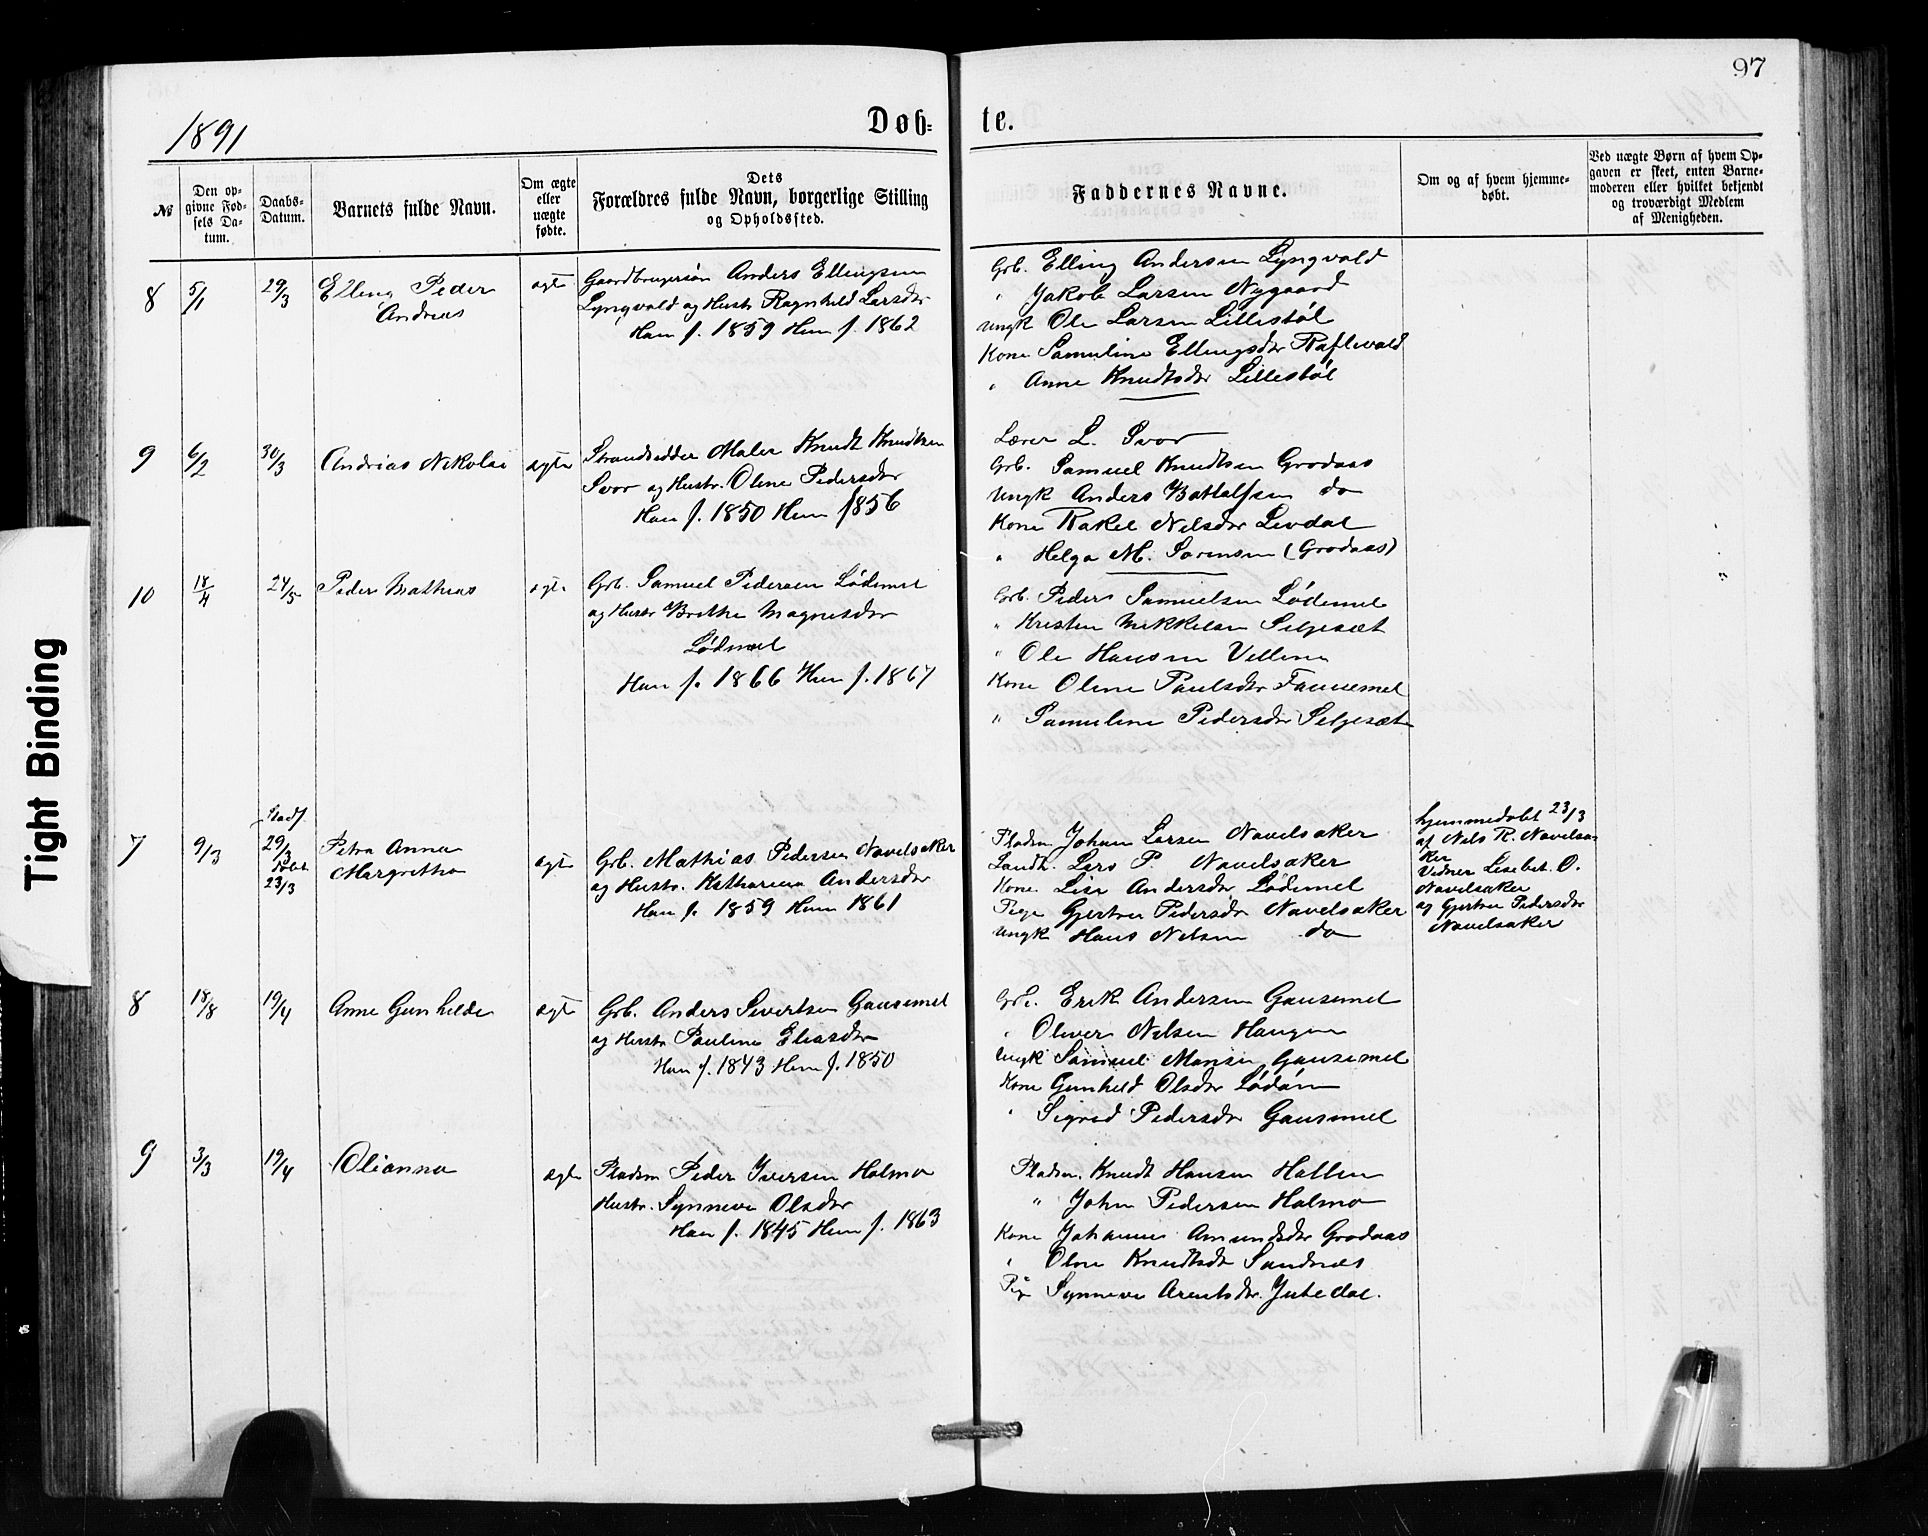 97
1891
Døb-
te.
No
Den opgivne Fødsels Datum.
Daabs-Datum.
Barnets fulde Navn.
Om ægte eller uægte fødte.
Dets Forældres fulde Navn, borgerlige Stilling og Opholdssted.
Faddernes Navne.
Om og af hvem hjemmedøbt.
Ved uægte Børn af hvem Opgaven er skeet, enten Barnemoderen eller hvilket bekjendt og troværdigt Medlem af Menigheden.
8 5/1 29/3 Elling Peder
Andreas
ægte
Gaardbrugersøn Anders Ellingsen
Lyngvold og Hustr Ragnhild Larsdtr
Han f. 1859 Hun f. 1862
Grb. Elling Andersen Lyngvold
" Jakob Larsen Nygaard
Ungk Ole Larsen Lillestøl
Kone Samuline Ellingsdtr Raftevold
" Anne Knudtsdtr Lillestøl
9 6/2 30/3 Andreas Nikolai
ægte
Strandsidder Maler Knudt Knudtsen
Svor og Hustr. Oline Pedersdtr
Han f. 1850 Hun 1856
Lærer L. Svor
Grb. Samuel Knudtsen Grodaas
Ungk Anders Bottolfsen do
Kone Rakel Nilsdtr Levdal
" Helga M. Sørensen (Grodaas)
10 18/4 24/5 Peder Mathias
ægte
Grb. Samuel Pedersen Lødemel
og Hustr Brithe Magnesdtr
Lødemel
Han f. 1866 Hun f. 1867
Grb. Peder Samuelsen Lødemel
" Kristen Mikkelsen Seljesæt
" Ole Hansen
Kone Oline Paulsdtr
" Samuline Pedersdtr Seljesæt
7 9/3
Stadf.
29/3
Døbt
23/3
Petra Anna
Margretha
ægte
Grb. Mathias Pedersen Navelsaker
og Hustr. Katharina Andersdtr
Han f. 1859 Hun 1861
Pladsm. Johan Larsen Navelsaker
Landh. Lars P. Navelsaker
Kone Lise Andersdtr Lødemel
Pige Gjertru Pedersdtr Navelsaker
Ungk Hans Nilsen do
hjemmedøbt 23/3
af Nils R. Navelsa-
ker
Vidner Lisebet O.
Navelsaker
og Gjertru Pedersdtr
Navelsaker
8 18/8 19/4 Anne Gunhilde
ægte
Grb. Anders Sivertsen Gausemel
og Hustr Pauline Eliasdtr
Han f. 1843 Hun f. 1850
Grb. Erik Andersen Gausemel
" Oliver Nilsen Haugen
Ungk Samuel Monsen Gausemel
Kone Gunhild Olsdtr
" Sigrid Pedersdtr Gausemel
9 3/3 19/4 Olianna
ægte
Pladsm Peder Iversen Holmo
Hustr. Synneve Olsdtr
Han f. 1845 Hun f. 1863
Pladsm. Knudt Hansen Hatlen
" John Pedersen Holmo
Kone Johanne Amundsdtr Grodaas
" Oline Knudtsdtr Sandnæs
Pige Synneve Arentsdtr.
Tight Binding